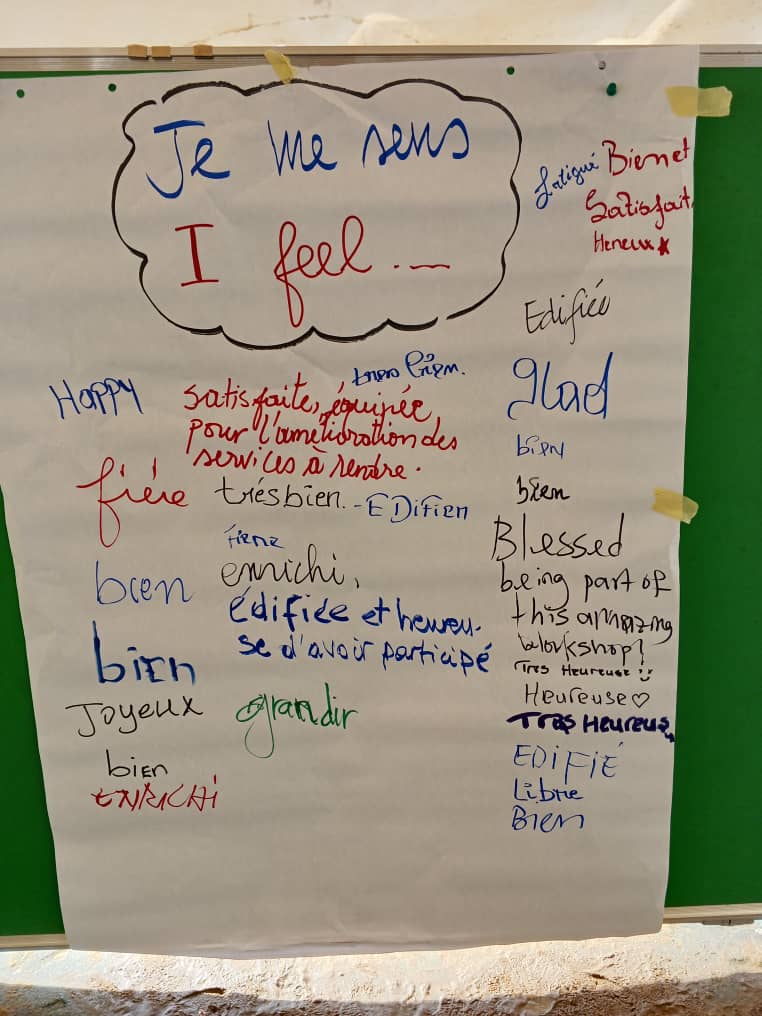 Je me sens
I feel...
fatigué
Bien et
Satisfait.
Heneux
Edifiée
Happy
très bien.
satisfaite, équipée,
pour l'amélioration des
services à rendre.
glad
bien
bien
fiére
trés bien.
- EDifien
Blessed
being part of
this amazing
workshop!
fiere
bien
enrichi,
édifiée et heureu-
se d'avoir participé
bien
Tres Heureuse
Heureuse
Joyeux
grandir
Tres Heureus
EDIFIÉ
bien
ENRICHI
Libre
Bien